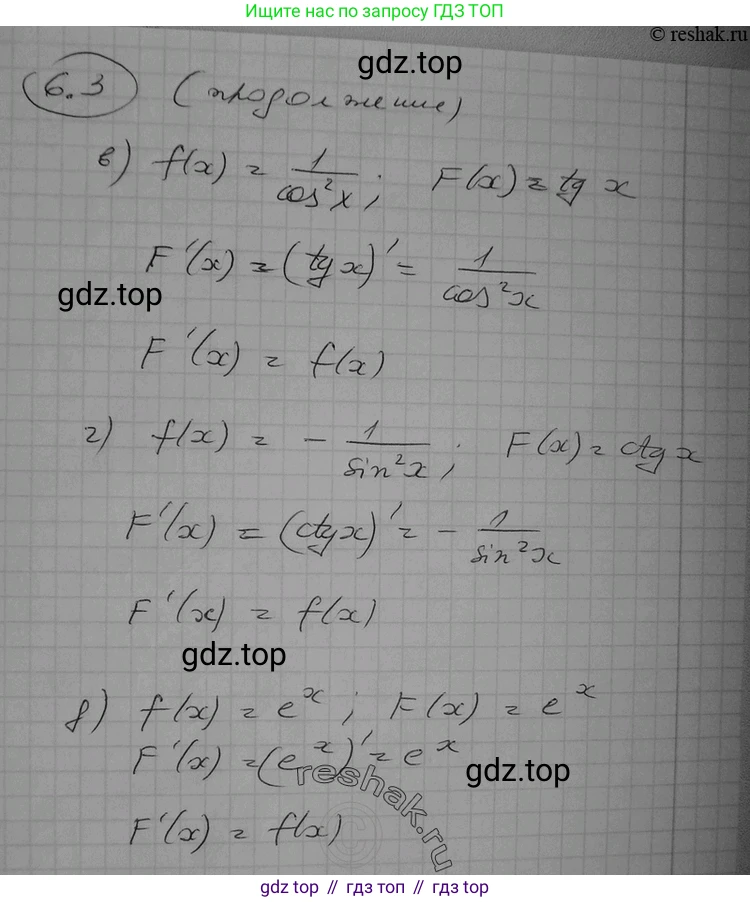 Ищите нас по запросу ГДЗ ТОП
© reshak.ru
gdz.top
6.3 (продолжение)
в) f(x) = 1/cos²x; F(x) = tg x
F'(x) = (tg x)' = 1/cos²x
gdz.top
F'(x) = f(x)
г) f(x) = - 1/sin²x; F(x) = ctg x
F'(x) = (ctg x)' = - 1/sin²x
F'(x) = f(x)
gdz.top
д) f(x) = eˣ; F(x) = eˣ
F'(x) = (eˣ)' = eˣ
gdz.top
reshak.ru
F'(x) = f(x)
gdz top // гдз топ // gdz.top